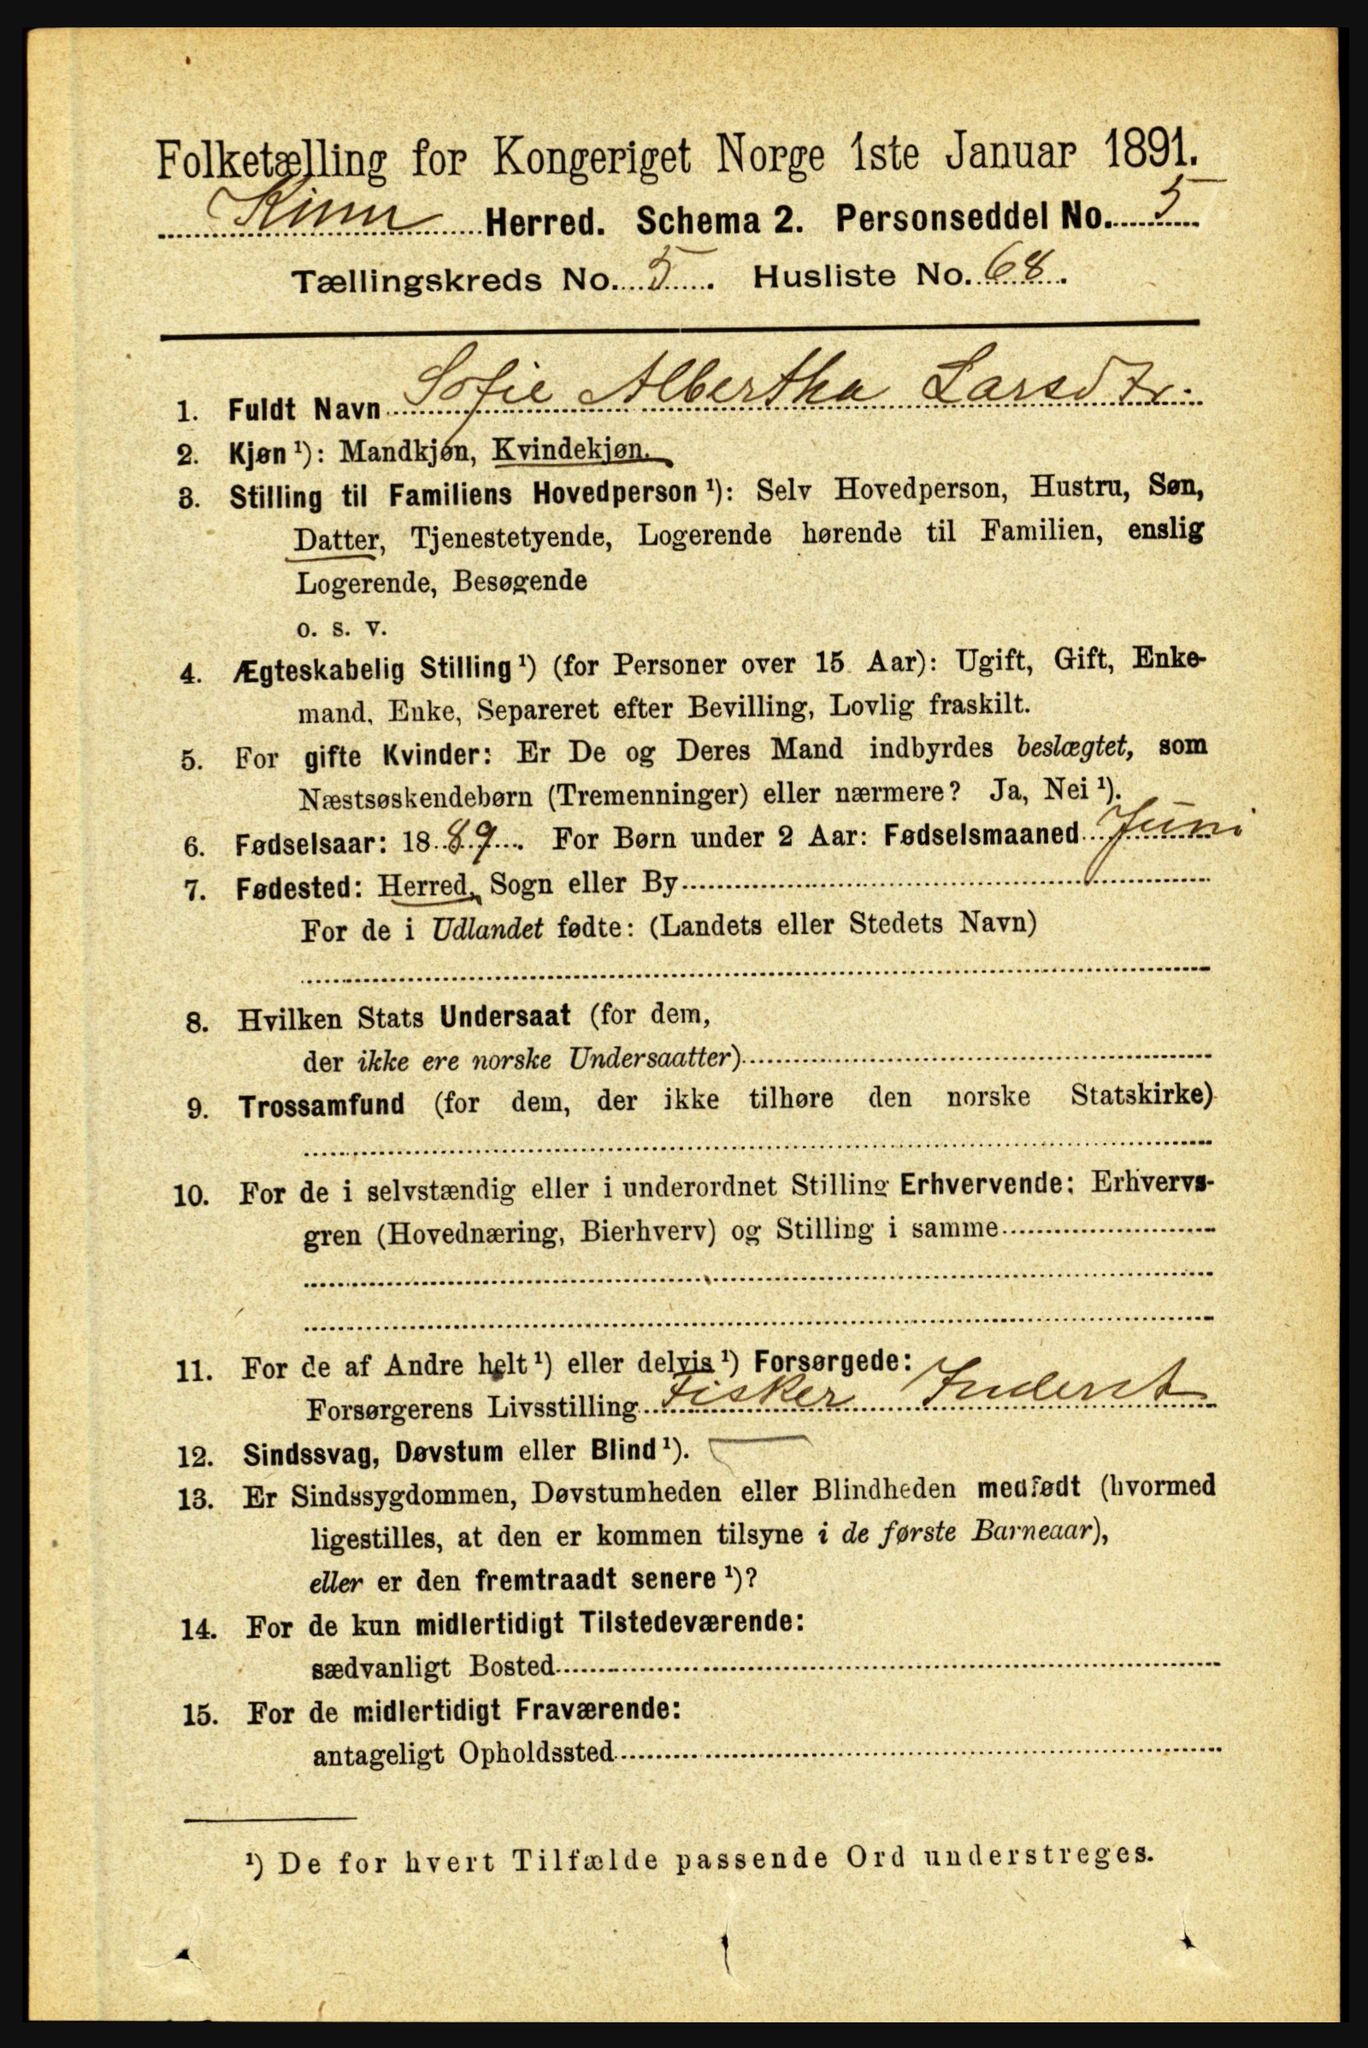 Folketælling for Kongeriget Norge 1ste Januar 1891.
Kinn Herred. Schema 2. Personseddel No. 5
Tællingskreds No. 5. Husliste No. 68.
1. Fuldt Navn Sofie Albertha Larsdtr.
2. Kjøn ¹): Mandkjøn, Kvindekjøn.
3. Stilling til Familiens Hovedperson ¹): Selv Hovedperson, Hustru, Søn,
Datter, Tjenestetyende, Logerende hørende til Familien, enslig
Logerende, Besøgende
o. s. v.
4. Ægteskabelig Stilling ¹) (for Personer over 15 Aar): Ugift, Gift, Enke-
mand, Enke, Separeret efter Bevilling, Lovlig fraskilt.
5. For gifte Kvinder: Er De og Deres Mand indbyrdes beslægtet, som
Næstsøskendebørn (Tremenninger) eller nærmere? Ja, Nei ¹).
6. Fødselsaar: 1889. For Børn under 2 Aar: Fødselsmaaned Juni
7. Fødested: Herred, Sogn eller By
For de i Udlandet fødte: (Landets eller Stedets Navn)
8. Hvilken Stats Undersaat (for dem,
der ikke ere norske Undersaatter)
9. Trossamfund (for dem, der ikke tilhøre den norske Statskirke)
10. For de i selvstændig eller i underordnet Stilling Erhvervende: Erhvervs-
gren (Hovednæring, Bierhverv) og Stilling i samme
11. For de af Andre helt ¹) eller delvis ¹) Forsørgede:
Forsørgerens Livsstilling Fisker Inderst
12. Sindssvag, Døvstum eller Blind ¹).
13. Er Sindssygdommen, Døvstumheden eller Blindheden medfødt (hvormed
ligestilles, at den er kommen tilsyne i de første Barneaar),
eller er den fremtraadt senere ¹)?
14. For de kun midlertidigt Tilstedeværende:
sædvanligt Bosted
15. For de midlertidigt Fraværende:
antageligt Opholdssted
¹) De for hvert Tilfælde passende Ord understreges.